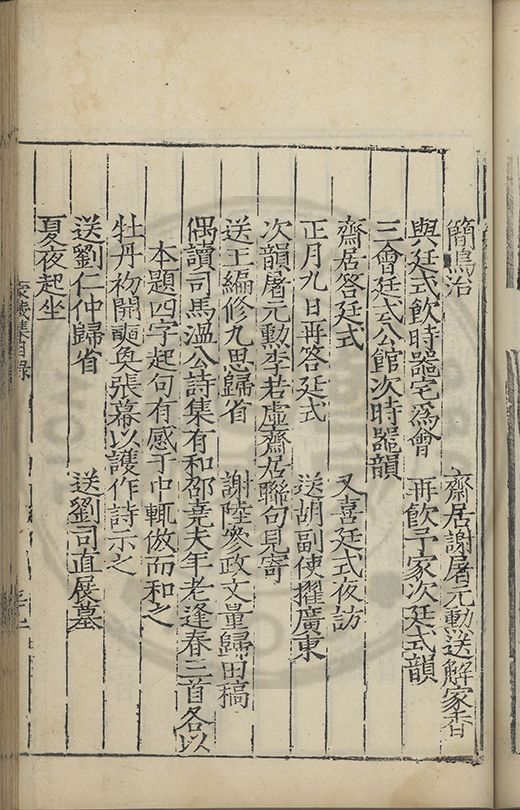 簡馬治　齋居謝屠元勳送解家香
與廷式飲時噐宅爲會　再飲予家次廷式韻
三會廷式公館次時噐韻
齋居答廷式　又喜廷式夜訪
正月九日再答廷式　送胡副使擢廣東
次韻屠元勳李若虛齋居聯句見寄
送王編修九思歸省　謝陸參政文量歸田稿
偶讀司馬溫公詩集有和邵堯夫年老逢春三首各以
本題四字起句有感于中輒倣而和之
牡丹初開 張幕以護作詩示之
送劉仁仲歸省　送劉司直展墓
夏夜起坐
集目錄